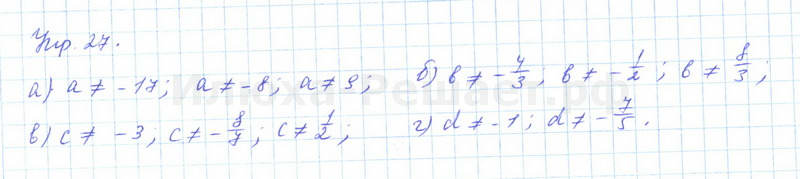 Упр. 27.
а) a ≠ -17; a ≠ -8; a ≠ 9; б) b ≠ -4/3; b ≠ -1/2; b ≠ 8/3;
в) c ≠ -3, c ≠ -8/7; c ≠ 1/2; г) d ≠ -1; d ≠ -7/5.
Илюха-Решает.рф